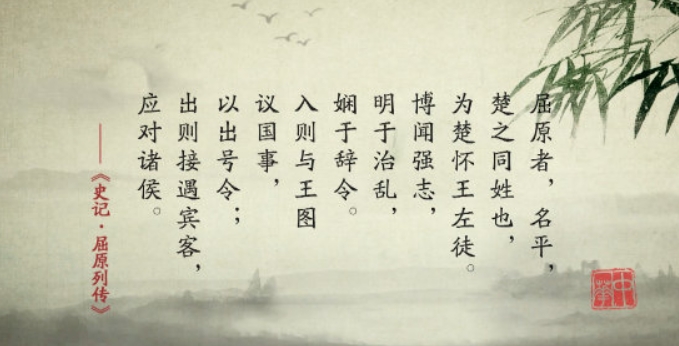 屈原者，名平，
楚之同姓也，
为楚怀王左徒。
博闻强志，
明于治乱，
娴于辞令。
入则与王图
议国事，
以出号令；
出则接遇宾客，
应对诸侯。
——《史记·屈原列传》
中华